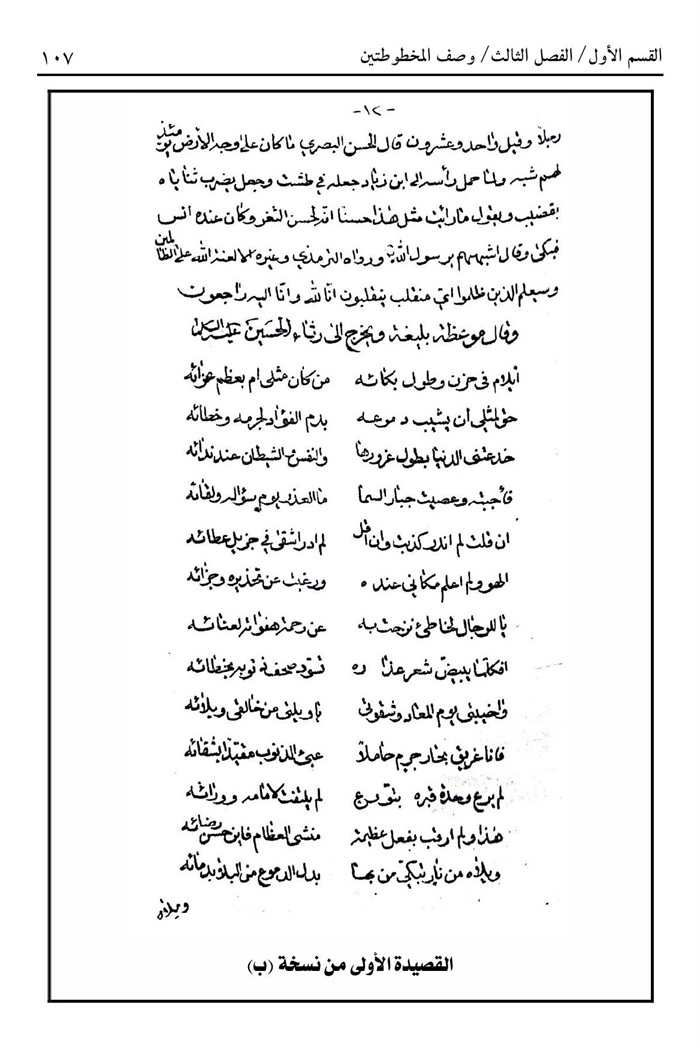 القسم الأول/ الفصل الثالث/ وصف المخطوطتين ١٠٧
-١٢-
رجلاً وقيل واحد وعشرون قال الحسن البصري ما كان على وجه الارض يومئذ
لهم شبه ولما حمل رأسه الى ابن زياد جعله في طشت وجعل يضرب ثناياه
بقضيب ويقول ما رأيت مثل هذا حسنا انه لحسن الثغر وكان عنده انس
فبكى وقال اشبههم برسول الله ورواه الترمذي وغيره الا لعنة الله على الظالمين
وسيعلم الذين ظلموا اي منقلب ينقلبون انا لله وانا اليه راجعون
وقال موعظة بليغة ويخرج الى رثاء الحسين عليه السلام
أيلام في حزن وطول بكائه من كان مثلي ام بعظم عزائه
حق لمثلي أن يشيب دموعه بدم الفؤاد لجرمه وخطائه
خدعتني الدنيا بطول غرورها والنفس والشيطان عند ندائه
فأجبته وعصيت جبار السما ما العذر يوم سؤاله ولقائه
ان قلت لم اندر كذبت وان اقل لم ادر اشقى في جزيل عطائه
الهو ولم اعلم مكاني عنده ورغبت عن تحذيره وجزائه
يا للرجال لخاطئ نزحت به عن رحمة هفواته لعنائه
افكلما يبيض شعر عذاره تسود صحفة بخطائه
واخيبتي يوم المعاد وشقوتي يا ويلتي من خالقي وبلائه
فانا غريق بحار جرم حاملا عبئ الذنوب مقيد بشقائه
لم يرع وحدة قبره بتورع لم يلتفت لامامه وورائه
هذا ولم ارقب بفعل عظيمة منشى العظام فاين حسن رضائه
ويلاه من نار يبكي من بها بدل الدموع من البلاء بدمائه
ويلاه
القصيدة الأولى من نسخة (ب)